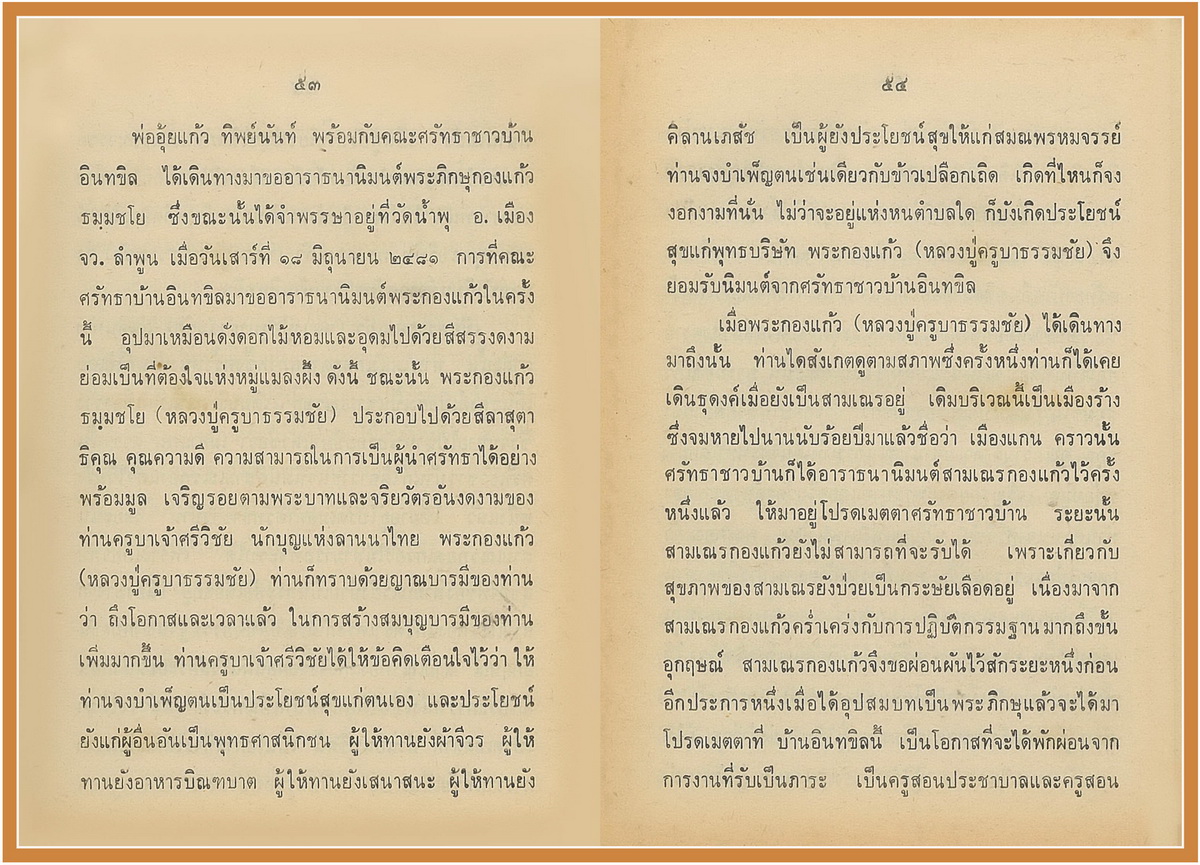 ๕๓
พ่ออุ้ยแก้ว ทิพย์นันท์ พร้อมกับคณะศรัทธาชาวบ้าน
อินทขิล ได้เดินทางมาขออาราธนานิมนต์พระภิกษุกองแก้ว
ธมฺมชโย ซึ่งขณะนั้นได้จำพรรษาอยู่ที่วัดน้ำพุ อ. เมือง
จว. ลำพูน เมื่อวันเสาร์ที่ ๑๘ มิถุนายน ๒๔๘๑ การที่คณะ
ศรัทธาบ้านอินทขิลมาขออาราธนานิมนต์พระกองแก้วในครั้ง
นี้ อุปมาเหมือนดั่งดอกไม้หอมและอุดมไปด้วยสีสรรงดงาม
ย่อมเป็นที่ต้องใจแห่งหมู่แมลงผึ้ง ดังนี้ ชณะนั้น พระกองแก้ว
ธมฺมชโย (หลวงปู่ครูบาธรรมชัย) ประกอบไปด้วยสีลาสุตา
ธิคุณ คุณความดี ความสามารถในการเป็นผู้นำศรัทธาได้อย่าง
พร้อมมูล เจริญรอยตามพระบาทและจริยวัตรอันงดงามของ
ท่านครูบาเจ้าศรีวิชัย นักบุญแห่งลานนาไทย พระกองแก้ว
(หลวงปู่ครูบาธรรมชัย) ท่านก็ทราบด้วยญาณบารมีของท่าน
ว่า ถึงโอกาสและเวลาแล้ว ในการสร้างสมบุญบารมีของท่าน
เพิ่มมากขึ้น ท่านครูบาเจ้าศรีวิชัยได้ให้ข้อคิดเตือนใจไว้ว่า ให้
ท่านจงบำเพ็ญตนเป็นประโยชน์สุขแก่ตนเอง และประโยชน์
ยังแก่ผู้อื่นอันเป็นพุทธศาสนิกชน ผู้ให้ทานยังผ้าจีวร ผู้ให้
ทานยังอาหารบิณฑบาต ผู้ให้ทานยังเสนาสนะ ผู้ให้ทานยัง
๕๔
คิลานเภสัช เป็นผู้ยังประโยชน์สุขให้แก่สมณพรหมจรรย์
ท่านจงบำเพ็ญตนเช่นเดียวกับข้าวเปลือกเถิด เกิดที่ไหนก็จง
งอกงามที่นั่น ไม่ว่าจะอยู่แห่งหนตำบลใด ก็บังเกิดประโยชน์
สุขแก่พุทธบริษัท พระกองแก้ว (หลวงปู่ครูบาธรรมชัย) จึง
ยอมรับนิมนต์จากศรัทธาชาวบ้านอินทขิล
เมื่อพระกองแก้ว (หลวงปู่ครูบาธรรมชัย) ได้เดินทาง
มาถึงนั้น ท่านไดสังเกตดูตามสภาพซึ่งครั้งหนึ่งท่านก็ได้เคย
เดินธุดงค์เมื่อยังเป็นสามเณรอยู่ เดิมบริเวณนี้เป็นเมืองร้าง
ซึ่งจมหายไปนานนับร้อยปีมาแล้วชื่อว่า เมืองแกน คราวนั้น
ศรัทธาชาวบ้านก็ได้อาราธนานิมนต์สามเณรกองแก้วไว้ครั้ง
หนึ่งแล้ว ให้มาอยู่โปรดเมตตาศรัทธาชาวบ้าน ระยะนั้น
สามเณรกองแก้วยังไม่สามารถที่จะรับได้ เพราะเกี่ยวกับ
สุขภาพของสามเณรยังป่วยเป็นกระษัยเลือดอยู่ เนื่องมาจาก
สามเณรกองแก้วคร่ำเคร่งกับการปฏิบัติกรรมฐานมากถึงขั้น
อุกฤษณ์ สามเณรกองแก้วจึงขอผ่อนผันไว้สักระยะหนึ่งก่อน
อีกประการหนึ่งเมื่อได้อุปสมบทเป็นพระภิกษุแล้วจะได้มา
โปรดเมตตาที่ บ้านอินทขิลนี้ เป็นโอกาสที่จะได้พักผ่อนจาก
การงานที่รับเป็นภาระ เป็นครูสอนประชาบาลและครูสอน